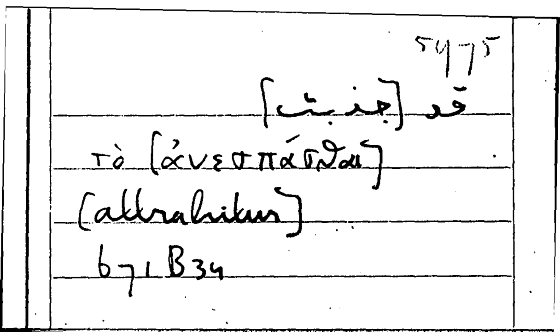 5475
قد [جذبت]
τὸ [ἀνεσπάσθαι]
[attrahitur]
671 B34